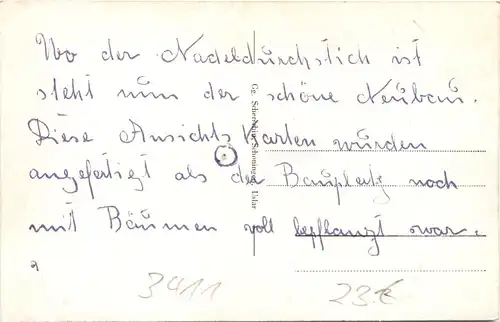 Wo der Nadeldurchstich ist
steht nun der schöne Neubau.
Diese Ansichts Karten wurden
angefertigt als der Bauplatz noch
mit Bäumen voll bepflanzt war.
3411
23€